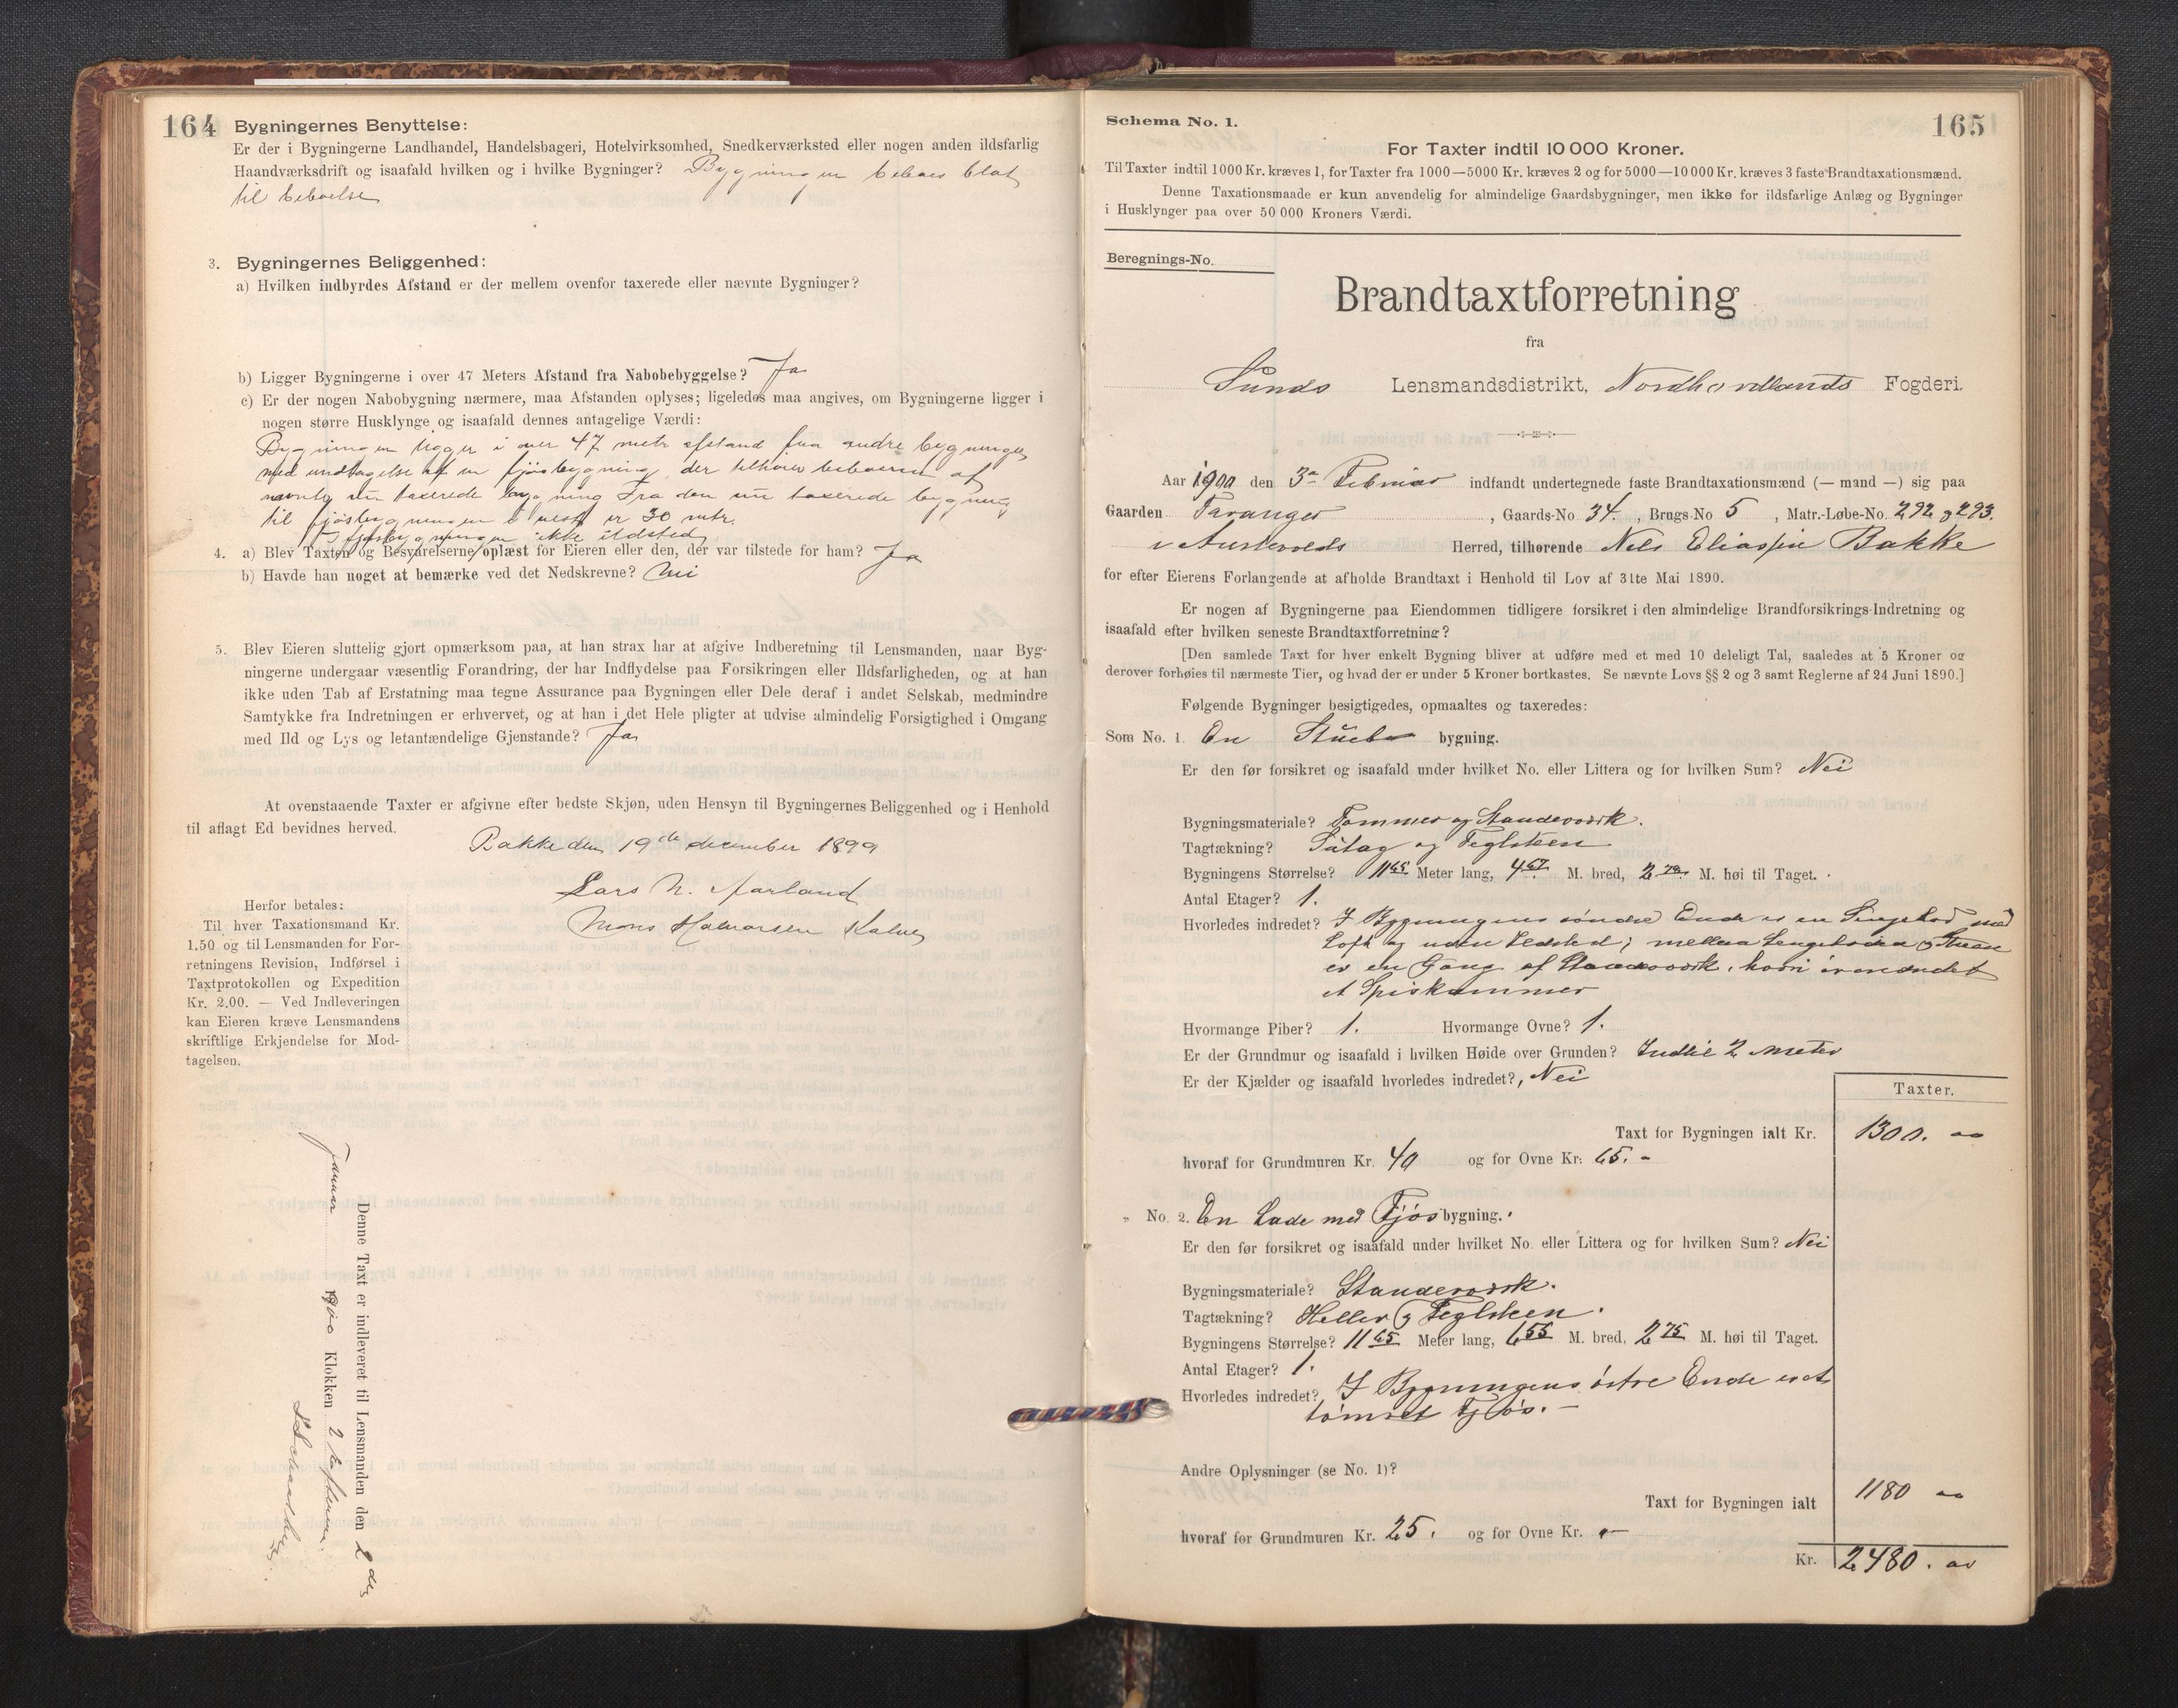 164
Bygningernes Benyttelse:
Er der i Bygningerne Landhandel, Handelsbageri, Hotelvirksomhed, Snedkerværksted eller nogen anden ildsfarlig
Haandværksdrift og isaafald hvilken og i hvilke Bygninger? Bygningen beboes blot
til beboelse
3. Bygningernes Beliggenhed:
a) Hvilken indbyrdes Afstand er der mellem ovenfor taxerede eller nævnte Bygninger?
b) Ligger Bygningerne i over 47 Meters Afstand fra Nabobebyggelse? Ja
c) Er der nogen Nabobygning nærmere, maa Afstanden oplyses; ligeledes maa angives, om Bygningerne ligger i
nogen større Husklynge og isaafald dennes antagelige Værdi:
Bygningen ligger i over 47 metr afstand fra andre bygninger
med undtagelse af en fjøsbygning der tilhører beboeren af
nævnte nu taxerede bygning Fra den nu taxerede bygning
til fjøsbygningen er 30 mtr.
I fjøsbygningen ikke ildsted
4. a) Blev Taxten og Besvarelserne oplæst for Eieren eller den, der var tilstede for ham? Ja
b) Havde han noget at bemærke ved det Nedskrevne? Nei
5. Blev Eieren sluttelig gjort opmærksom paa, at han strax har at afgive Indberetning til Lensmanden, naar Byg-
ningerne undergaar væsentlig Forandring, der har Indflydelse paa Forsikringen eller Ildsfarligheden, og at han
ikke uden Tab af Erstatning maa tegne Assurance paa Bygningen eller Dele deraf i andet Selskab, medmindre
Samtykke fra Indretningen er erhvervet, og at han i det Hele pligter at udvise almindelig Forsigtighed i Omgang
med Ild og Lys og letantændelige Gjenstande? Ja
At ovenstaaende Taxter er afgivne efter bedste Skjøn, uden Hensyn til Bygningernes Beliggenhed og i Henhold
til aflagt Ed bevidnes herved.
Bakke den 19de december 1899
Lars N.
Mons Halvorsen Kalve
Herfor betales:
Til hver Taxationsmand Kr.
1.50 og til Lensmanden for For-
retningens Revision, Indførsel i
Taxtprotokollen og Expedition
Kr. 2.00. — Ved Indleveringen
kan Eieren kræve Lensmandens
skriftlige Erkjendelse for Mod-
tagelsen.
Denne Taxt er indleveret til Lensmanden den 2den
Januar 1900 Klokken 2 Eftermd.
Schema No. 1.
165
For Taxter indtil 10 000 Kroner.
Til Taxter indtil 1000 Kr. kræves 1, for Taxter fra 1000—5000 Kr. kræves 2 og for 5000—10000 Kr. kræves 3 faste Brandtaxationsmænd.
Denne Taxationsmaade er kun anvendelig for almindelige Gaardsbygninger, men ikke for ildsfarlige Anlæg og Bygninger
i Husklynger paa over 50 000 Kroners Værdi.
Beregnings-No.
Brandtaxtforretning
fra
Sunds Lensmandsdistrikt, Nordhordlands Fogderi.
Aar 1900 den 3 Februar indfandt undertegnede faste Brandtaxationsmænd (— mand —) sig paa
Gaarden Taranger, Gaards-No 34., Brugs-No 5, Matr.-Løbe-No. 292 og 293.
i Austevolds Herred, tilhørende Nels Eliassen Bakke
for efter Eierens Forlangende at afholde Brandtaxt i Henhold til Lov af 31te Mai 1890.
Er nogen af Bygningerne paa Eiendommen tidligere forsikret i den almindelige Brandforsikrings-Indretning og
isaafald efter hvilken seneste Brandtaxtforretning?
[Den samlede Taxt for hver enkelt Bygning bliver at udføre med et med 10 deleligt Tal, saaledes at 5 Kroner og
derover forhøies til nærmeste Tier, og hvad der er under 5 Kroner bortkastes. Se nævnte Lovs §§ 2 og 3 samt Reglerne af 24 Juni 1890.]
Følgende Bygninger besigtigedes, opmaaltes og taxeredes:
Som No. 1. En Stuebygning.
Er den før forsikret og isaafald under hvilket No. eller Littera og for hvilken Sum? Nei
Bygningsmateriale? Tømmer og Standeværk.
Tagtækning? og Teglsteen
Bygningens Størrelse? 11 65 Meter lang, 4 67 M. bred, 2 70 M. høi til Taget.
Antal Etager? 1.
Hvorledes indredet? I Bygningens søndre Ende er en Sengebod med
Loft og uden Ildsted; mellem Sengeboden og Stuen
er en Gang af Standeværk, hvori er indredet
et Spiskammer
Hvormange Piber? 1. Hvormange Ovne? 1.
Er der Grundmur og isaafald i hvilken Høide over Grunden? Indtil 2 Meter
Er der Kjælder og isaafald hvorledes indredet?, Nei
Taxter.
Taxt for Bygningen ialt Kr. 1300. 00
hvoraf for Grundmuren Kr. 40 og for Ovne Kr: 65.-
„ No. 2. En Lade med Fjøsbygning.
Er den før forsikret og isaafald under hvilket No. eller Littera og for hvilken Sum? Nei
Bygningsmateriale? Standeværk.
Tagtækning? Heller og Teglsteen.
Bygningens Størrelse? 11 65 Meter lang, 6 55 M. bred, 2 75 M. høi til Taget.
Antal Etager? 1.
Hvorledes indredet? I Bygningens østre Ende er et
tømret Fjøs.-
Andre Oplysninger (se No. 1)?
Taxt for Bygningen ialt 1180 00
hvoraf for Grundmuren Kr. 25. og for Ovne Kr. „—
Kr. 2480. 00